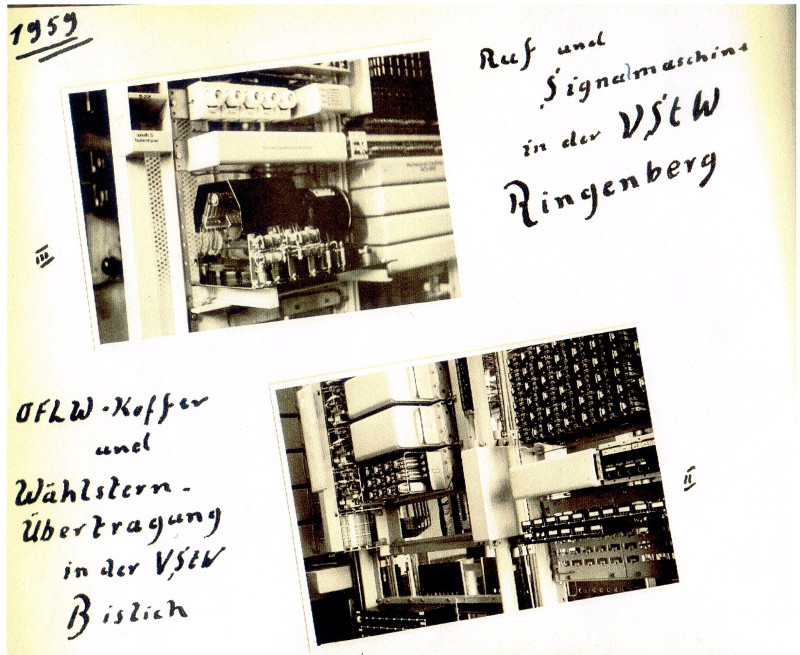 1959
Ruf und
Signalmaschine
in der VStW
Ringenberg
III
OFLW-Koffer
und
Wählstern-
Übertragung
in der VStW
Bislich
II